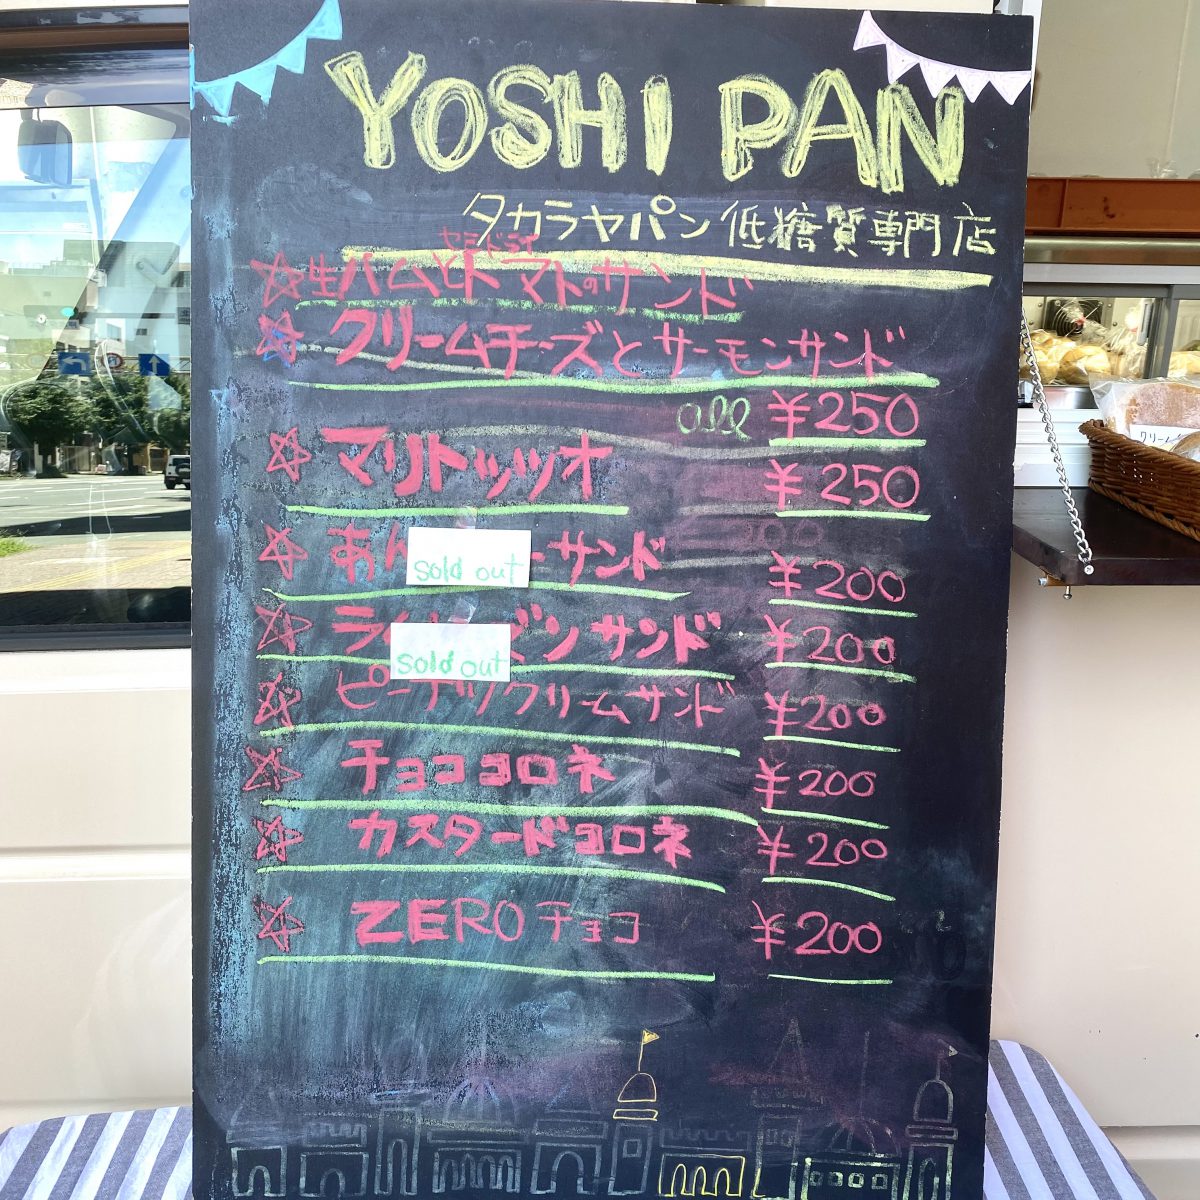 YOSHI PAN
タカラヤパン 低糖質専門店
セミドライ
生ハムとトマトのサンド
クリームチーズとサーモンサンド
all ¥250
マリトッツオ ¥250
あん ーサンド ¥200
sold out
ラ ズンサンド ¥200
sold out
ピーナッツクリームサンド ¥200
チョココロネ ¥200
カスタードコロネ ¥200
ZEROチョコ ¥200
クリーム